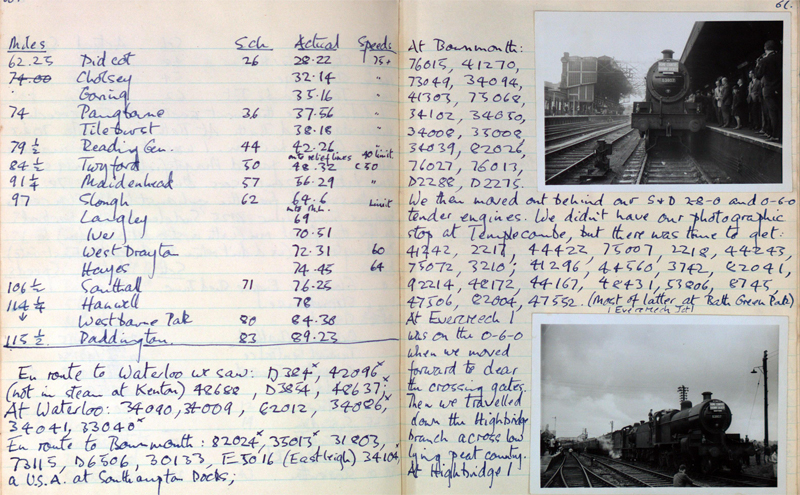 Miles Sch. Actual Speeds
62.25 Didcot 26 28.22 75+
74.00 Cholsey 32.14 "
Goring 35.16 "
74 Pangbourne 36 37.56 "
Tilehurst 38.18 "
79½ Reading Gen. 44 42.26 "
onto relief lines 40 limit
84½ Twyford 50 48.32 <50
91¼ Maidenhead 57 56.29 "
97 Slough 62 64.6 limit
Langley 69
Iver 70.51
West Drayton 72.31 60
Hayes 74.45 64
106½ Southall 71 76.25
Hanwell 78
Westbourne Pak 80 84.30
115½ Paddington 83 89.23
En route to Waterloo we saw: D384ˣ, 42096ˣ
(not in steam at Kenton) 48688, D3854, 48637;
At Waterloo: 34090, 34009, 82012, 34086,
34041, 33040ˣ
En route to Bournmouth: 82024ˣ, 35013ˣ, 31803,
73115, D6506, 30133, E5016 (Eastleigh) 34104,
a U.S.A. at Southampton Docks;
61.
At Bournmouth:
76015, 41270,
73049, 34094,
41303, 75068,
34102, 34050,
34008, 35008,
34039, 82026,
76027, 76013,
D2288, D2275.
We then moved out behind our S&D 28-0 and 0-6-0
tender engines. We didn't have our photographic
stop at Templecombe, but there was time to get:
41242, 2217, 44422, 75007, 2218, 44243,
75072, 3210; 41296, 44560, 3742, 82041,
92214, 48172, 44167, 48431, 53806, 8745,
47506, 82004, 47552. (Most of latter at Bath Green Park)
At Evercreech I (Evercreech Jct)
was on the 0-6-0
when we moved
forward to clear
the crossing gates.
Then we travelled
down the Highbridge
branch across low
lying peat country.
At Highbridge I